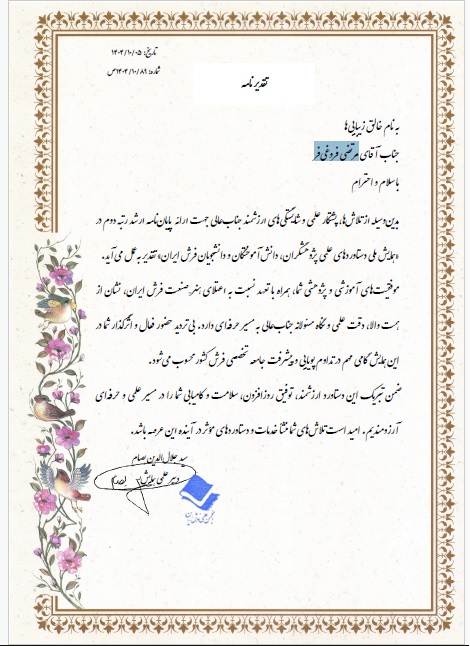 تاریخ: ۱۴۰۴/۱۰/۰۵
شماره: ۱۴۰۴/۱۰/۸۹ص
تقدیرنامه
به نام خالق زیبایی‌ها
جناب آقای مرتضی فروغی فر
با سلام و احترام
بدین‌وسیله از تلاش‌ها، پشتکار علمی و شایستگی‌های ارزشمند جناب‌عالی جهت ارائه پایان‌نامه ارشد رتبه دوم در
«همایش ملی دستاوردهای علمی پژوهشگران، دانش آموختگان و دانشجویان فرش ایران» تقدیر به عمل می‌آید.
موفقیت‌های آموزشی و پژوهشی شما، همراه با تعهد نسبت به اعتلای هنر-صنعت فرش ایران، نشان از
همت والا، دقت علمی و نگاه مسئولانه جناب‌عالی به مسیر حرفه‌ای دارد. بی‌تردید حضور فعال و اثرگذار شما در
این همایش گامی مهم در تداوم پویایی و پیشرفت جامعه تخصصی فرش کشور محسوب می‌شود.
ضمن تبریک این دستاورد ارزشمند، توفیق روزافزون، سلامت و کامیابی شما را در مسیر علمی و حرفه‌ای
آرزومندیم. امید است تلاش‌های شما منشأ خدمات و دستاوردهای مؤثر در آینده این عرصه باشد.
سید جلال‌الدین بصام
دبیر علمی همایش
انجمن علمی فرش ایران